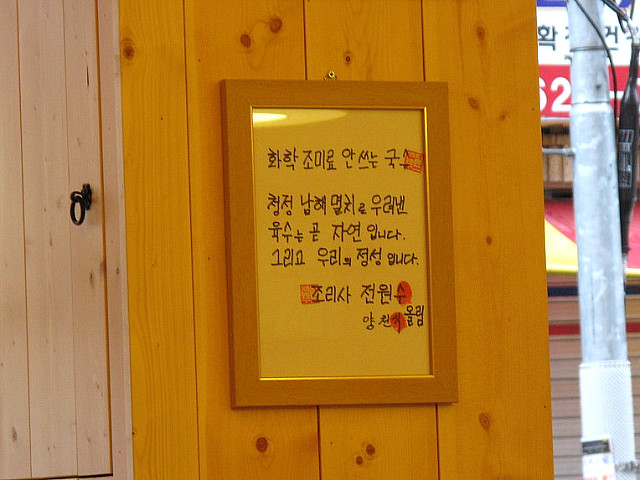 화학 조미료 안 쓰는 국수
청정 남해 멸치로 우려낸
육수는 곧 자연 입니다.
그리고 우리의 정성 입니다.
조리사 전원수
양 올림
확
62